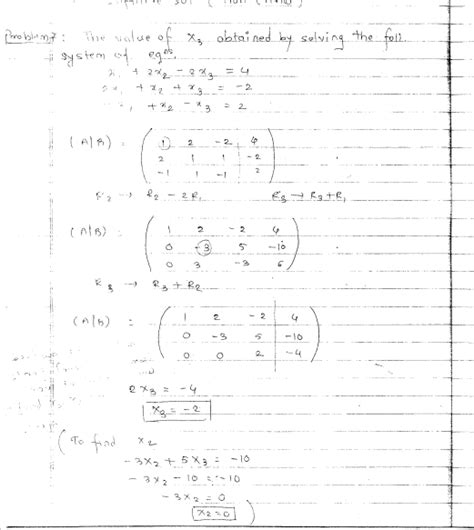 Problem 7: The value of x₃ obtained by solving the foll.
system of eqes.
x₁ + 2x₂ - 2x₃ = 4
2x₁ + x₂ + x₃ = -2
x₁ + x₂ - x₃ = 2
(A|B) : ( 1 2 -2 | 4
2 1 1 | -2
-1 1 -1 | 2 )
R₂ → R₂ - 2R₁ R₃ → R₃ + R₁
(A|B) : ( 1 2 -2 4
0 -3 5 -10
0 3 -3 6 )
R₃ → R₃ + R₂
(A|B) : ( 1 2 -2 | 4
0 -3 5 | -10
0 0 2 | -4 )
2x₃ = -4
x₃ = -2
( To find x₂
-3x₂ + 5x₃ = -10
-3x₂ - 10 = -10
-3x₂ = 0
x₂ = 0 )